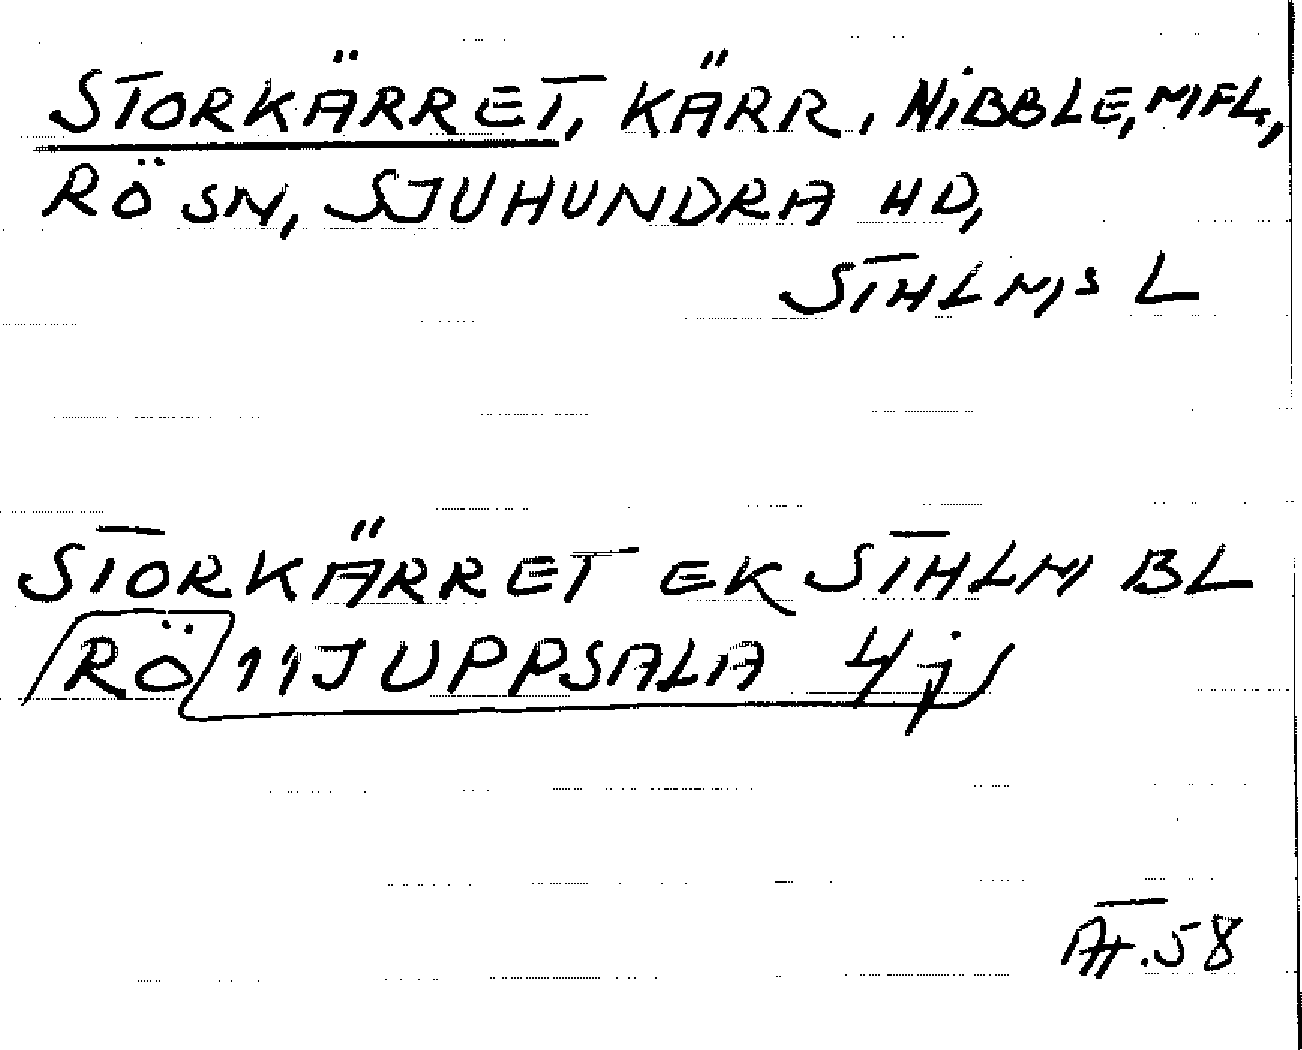 STORKÄRRET, KÄRR, NIBBLE, MFL,
RÖ SN, SJUHUNDRA HD,
STHLMS L
STORKÄRRET EK STHLM BL
RÖ 11J UPPSALA 4j
AT. 58